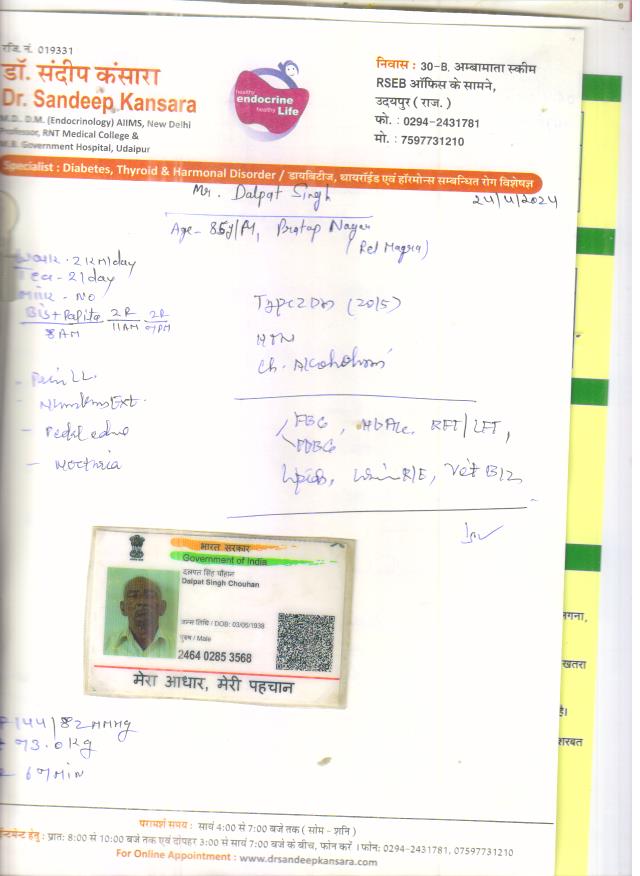 रजि. नं. 019331
डॉ. संदीप कंसारा
Dr. Sandeep Kansara
M.D., D.M. (Endocrinology) AIIMS, New Delhi
Professor, RNT Medical College &
M.B. Government Hospital, Udaipur
healthy
endocrine
healthy Life
निवास : 30-B, अम्बामाता स्कीम
RSEB ऑफिस के सामने,
उदयपुर ( राज. )
फो. : 0294-2431781
मो. : 7597731210
Specialist : Diabetes, Thyroid & Harmonal Disorder / डायबिटीज, थायरॉईड एवं हॉरमोन्स सम्बन्धित रोग विशेषज्ञ
Mr. Dalpat Singh
24/4/2024
Age - 85y/M, Pratap Nagar
(Rel Magra)
Walk - 2 KM/day
Tea - 2/day
Milk - No
Bis + Papita 2R 2R
8 AM 11AM 9PM
Type 2 DM (2015)
HTN
Ch. Alcoholism
- Pain LL.
- Numbness Ext.
- Pedal edema
- Nocturia
FBG, HbA1c, RFT/LFT,
PPBG
Lipids, Urine R/E, Vit B12
भारत सरकार
Government of India
दलपत सिंह चौहान
Dalpat Singh Chouhan
जन्म तिथि / DOB: 03/05/1938
पुरुष / Male
2464 0285 3568
मेरा आधार, मेरी पहचान
144/82 mmHg
73.0 Kg
67 Min
लगना,
खतरा
है।
शरबत
परामर्श समय : सायं 4:00 से 7:00 बजे तक ( सोम - शनि )
हेतु : प्रातः 8:00 से 10:00 बजे तक एवं दोपहर 3:00 से सायं 7:00 बजे के बीच, फोन करें । फोन: 0294-2431781, 07597731210
For Online Appointment : www.drsandeepkansara.com